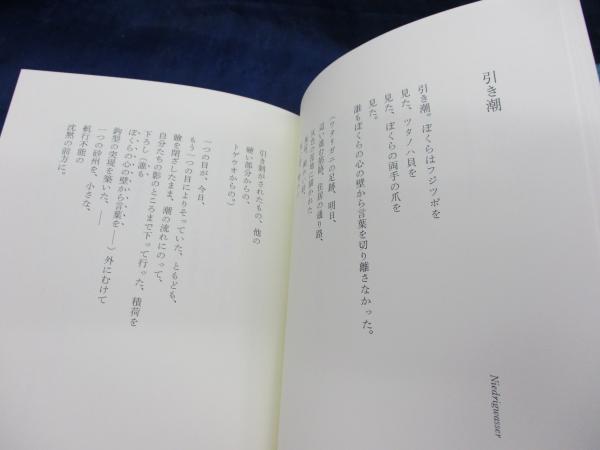 引き潮
Niedrigwasser
引き潮。ぼくらはフジツボを
見た、ツタノハ貝を
見た、ぼくらの両手の爪を
見た。
誰もぼくらの心の壁から言葉を切り離さなかった。
(ワタリガニの足跡、明日、
引き剝がされたもの、他の
硬い部分からの、
トゲウオからの。)
一つの目が、今日、
もう一つの目によりそっていた、ともども、
瞼を閉ざしたまま、潮の流れにのって、
自分たちの影のところまで下って行った、積荷を
下ろし(誰も
ぼくらの心の壁から言葉を――)外にむけて
鉤型の突堤を築いた、――
一つの砂州を、小さな、
航行不能の
沈黙の前方に。